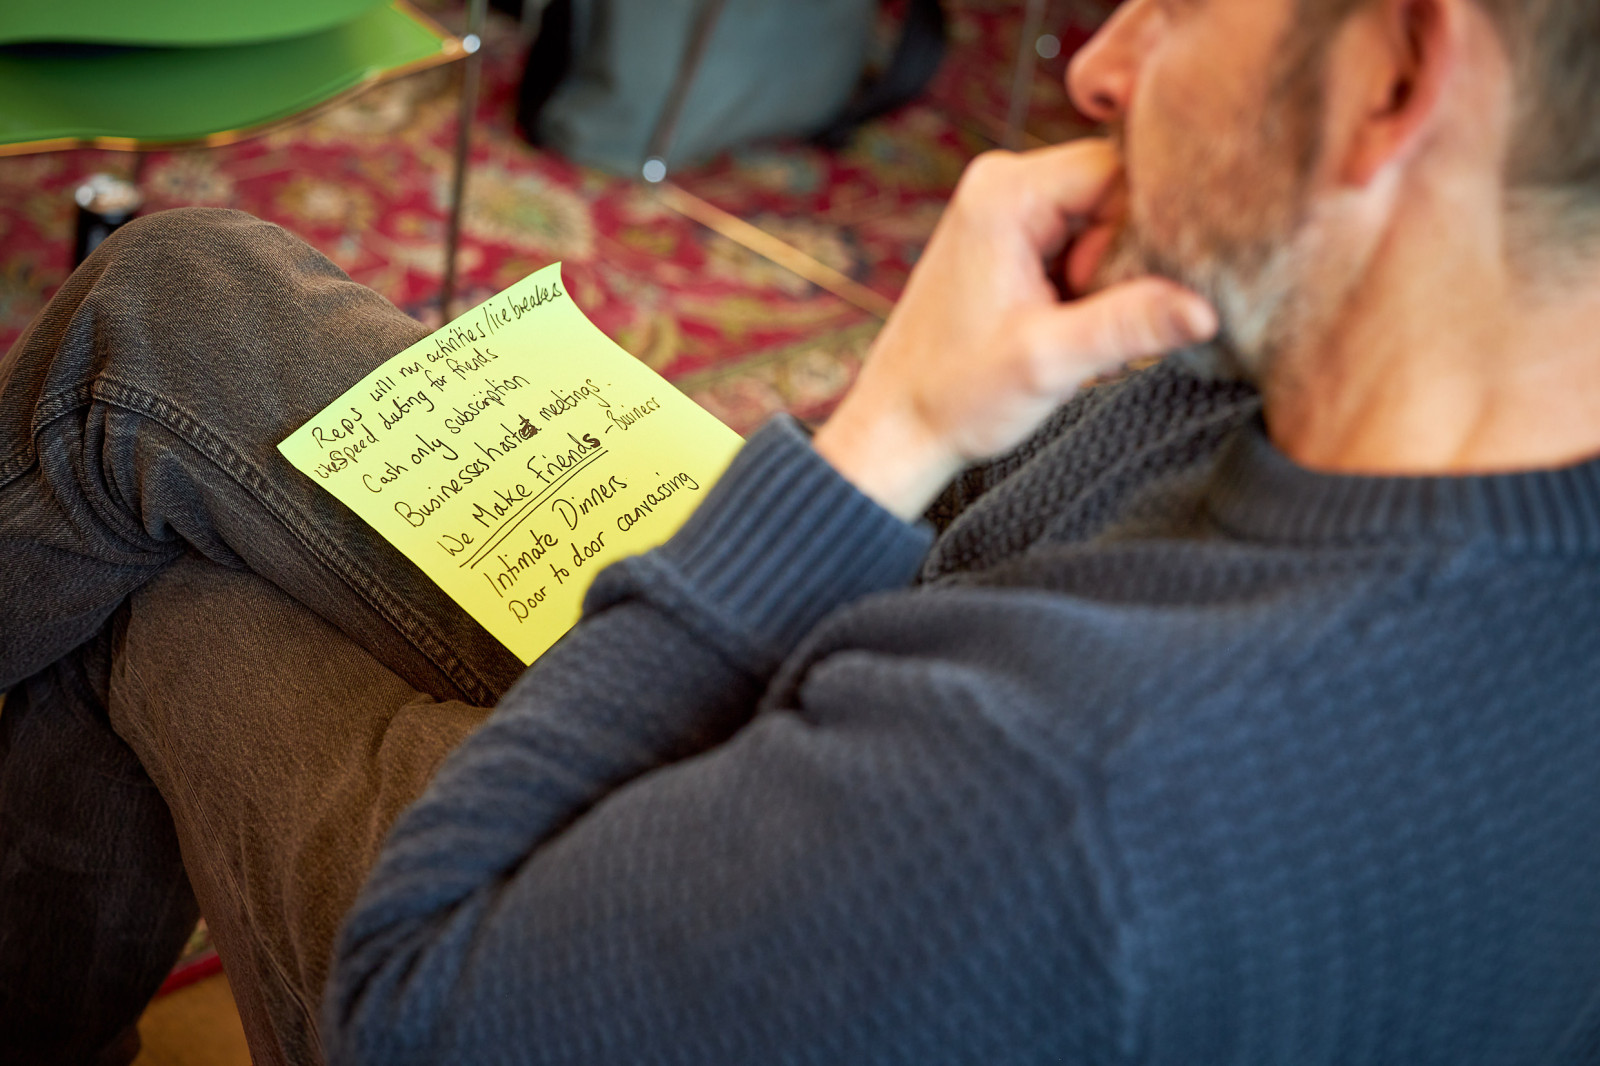 Reps will run activities/ice breakers
like speed dating for friends
Cash only subscription
Businesses host meetings.
We Make Friends - Business
Intimate Dinners
Door to door canvassing